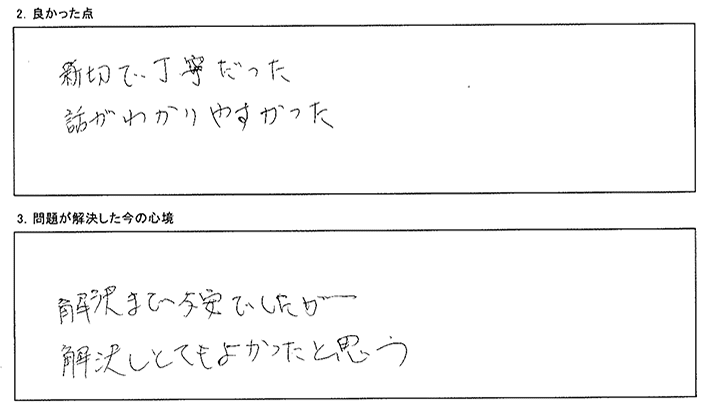 2. 良かった点
親切で、丁寧だった
話がわかりやすかった
3. 問題が解決した今の心境
解決まで不安でしたが
解決しとてもよかったと思う